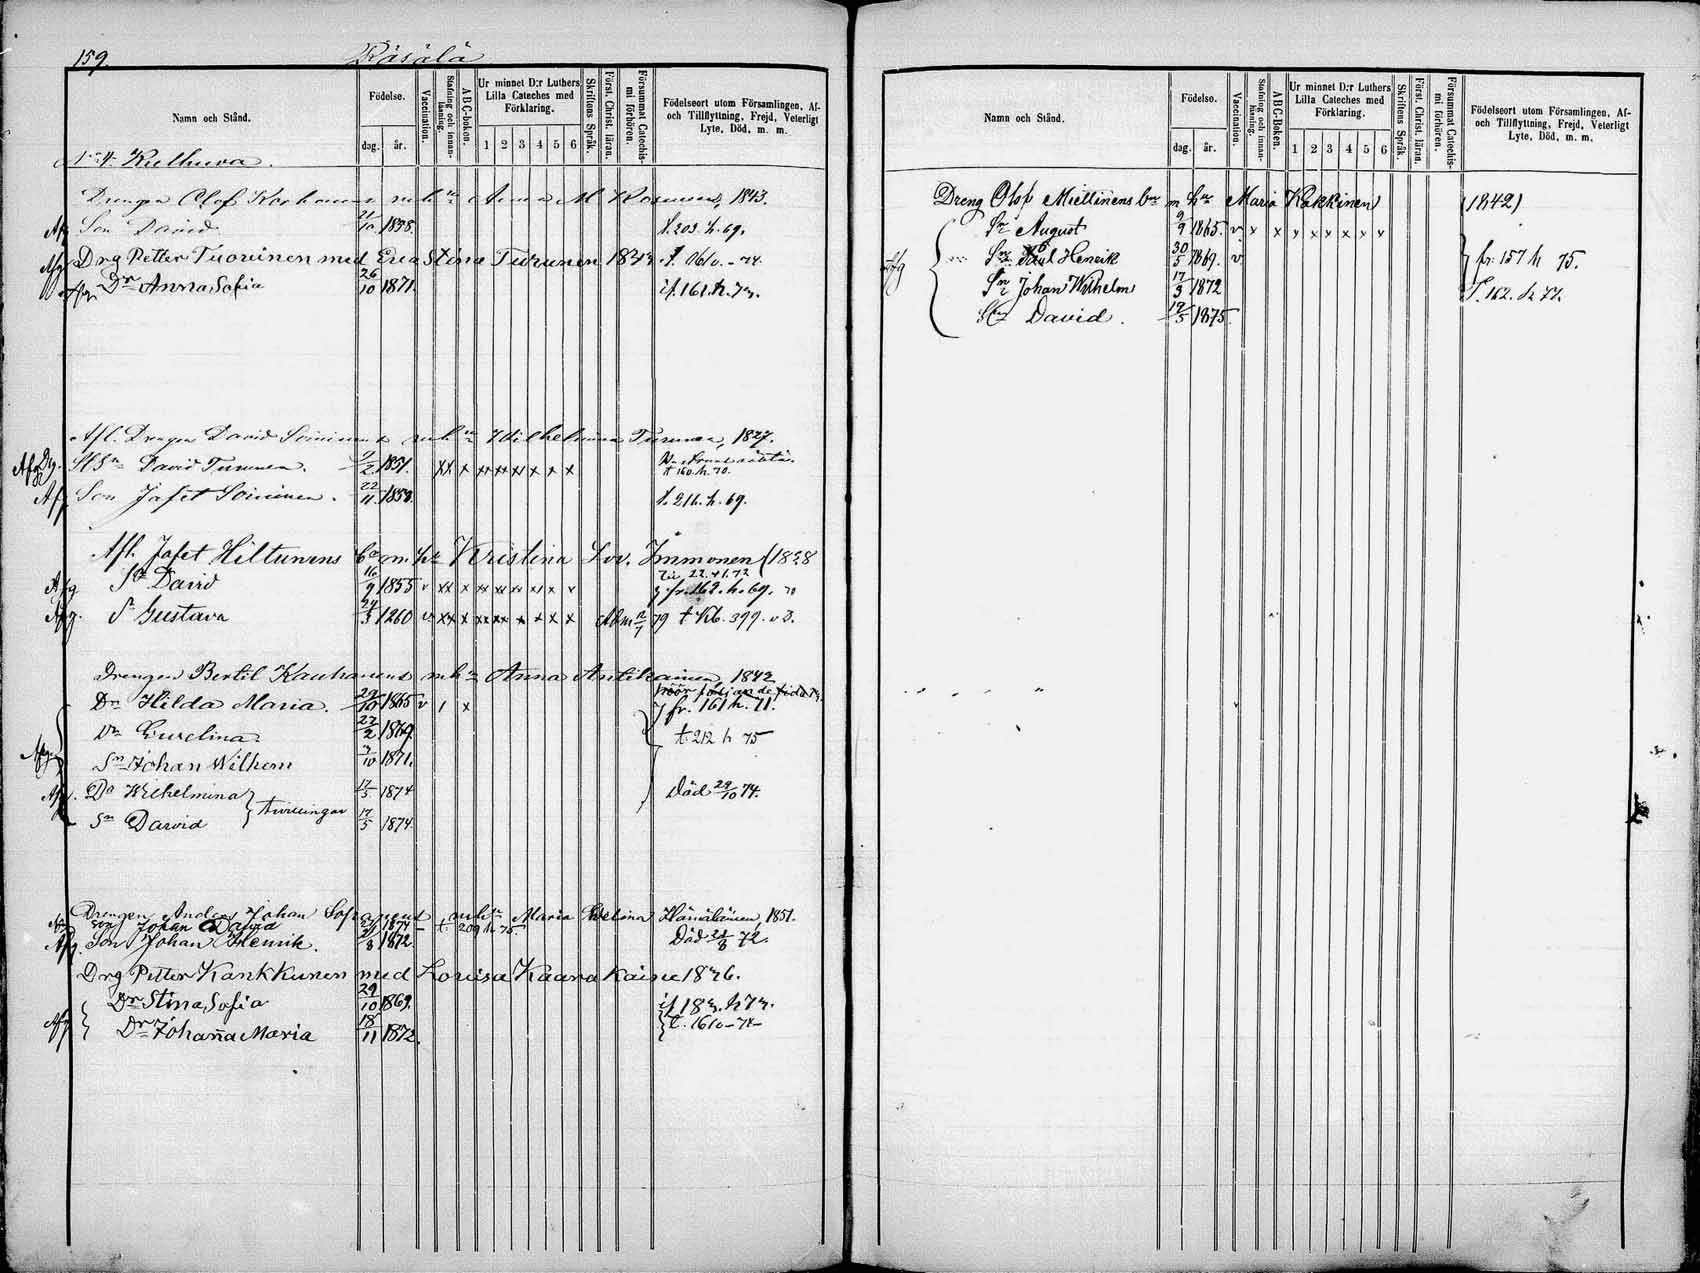 159.
Räsälä
Namn och Stånd.
Födelse.
dag.
år.
Vaccination.
Stafning och innanläsning.
A B C-boken.
Ur minnet D:r Luthers Lilla Cateches med Förklaring.
1 2 3 4 5 6
Skriftens Språk.
Först. Christ. läran.
Försummat Catechismi förhören.
Födelseort utom Församlingen, Af- och Tillflyttning, Frejd, Veterligt Lyte, Död, m. m.
N:o 4. Kulhuva.
Drengen Olof Korhonens m h:u Anna M 1843.
Afg Son David 21/10 1858. t. 203. h. 69.
Afg Drg Petter Tuovinen med Eva Stina Turunen 1843
Afg Dr Anna Sofia 26/10 1871. if. 161. h. 73.
Afl. Drengen David Soininens m h:u Wilhelmina Turunen, 1827.
Afg Drg. St Sn David Turunen. 9/2 1851. xx x xx xx x x x x t 160. h. 70.
Af Son Jafet Soininen. 22/11 1858. t. 216. h. 69.
Afl. Jafet Hiltunens b:a m. h:u Kristina Lov. Immonen (1828
Afg Sn David 16/9 1855 v xx x xx xx x x x x fr. 162. h. 69.
Afg. Sn Gustava 24/3 1260 v xx x xx xx x x x x Adm 79 t Kb. 399. v. 3.
Drengen Bertil Kauhanens m h:u Anna Antikainen, 1842
Dr Hilda Maria. 29/10 1865 v 1 x fr. 161 h. 71.
Dr Evelina. 22/2 1869 t. 212 h 75
Afg Sn Johan Wilhem 3/10 1871.
Afg. Dr Wilhelmina 17/5 1874 Död 29/10 74.
Sn David } tvillingar 17/5 1874.
Drengen Anders Johan m h:u Maria Evelina Hämäläinen, 1851.
Son Johan David 1874 – t. 209 h 75.
Afg. Son Johan Henrik. 21/8 1872. Död 21/8 72.
Drg Petter Kankkunen med Lovisa Kaarakaine 1846.
Dr Stina Sofia 29/10 1869. if 183. h 73.
Afg Dr Johanna Maria 18/11 1872. t. 161 – 74 –
Namn och Stånd.
Födelse.
dag.
år.
Vaccination.
Stafning och innanläsning.
A B C-Boken.
Ur minnet D:r Luthers Lilla Cateches med Förklaring.
1 2 3 4 5 6
Skriftens Språk.
Först. Christ. läran.
Försummat Catechismi förhören.
Födelseort utom Församlingen, Af- och Tillflyttning, Frejd, Veterligt Lyte, Död, m. m.
Dreng Olof Miettinens b:er m h:u Maria Kokkinen (1842)
Sn August 9/9 1865. v x x x x x x x x
Afg Sn Paul Henrik 30/5 1869. v } fr. 157 h 75.
Sn Johan Wilhelm 17/3 1872 T. 162. h 77.
Son David. 19/5 1875.